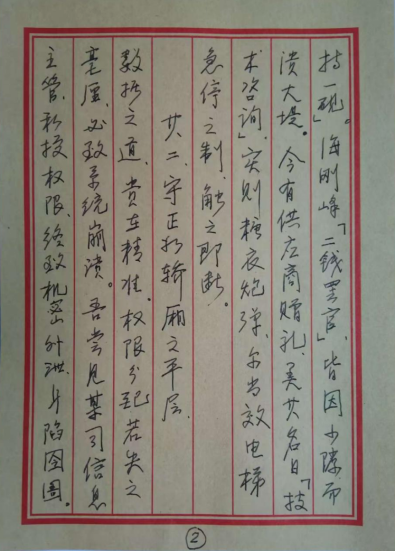 持一砚」。海刚峰「二钱罢官」，皆因小隙而
溃大堤。今有供应商赠礼，美其名曰「技
术咨询」，实则糖衣炮弹，尔当效电梯
急停之制，触之即断。
其二、守正于轿厢之平层
数据之道，贵在精准，权限分配若失之
毫厘，必致系统崩溃。吾尝见某司信息
主管，私授权限，终致机密外泄，身陷囹圄。
2